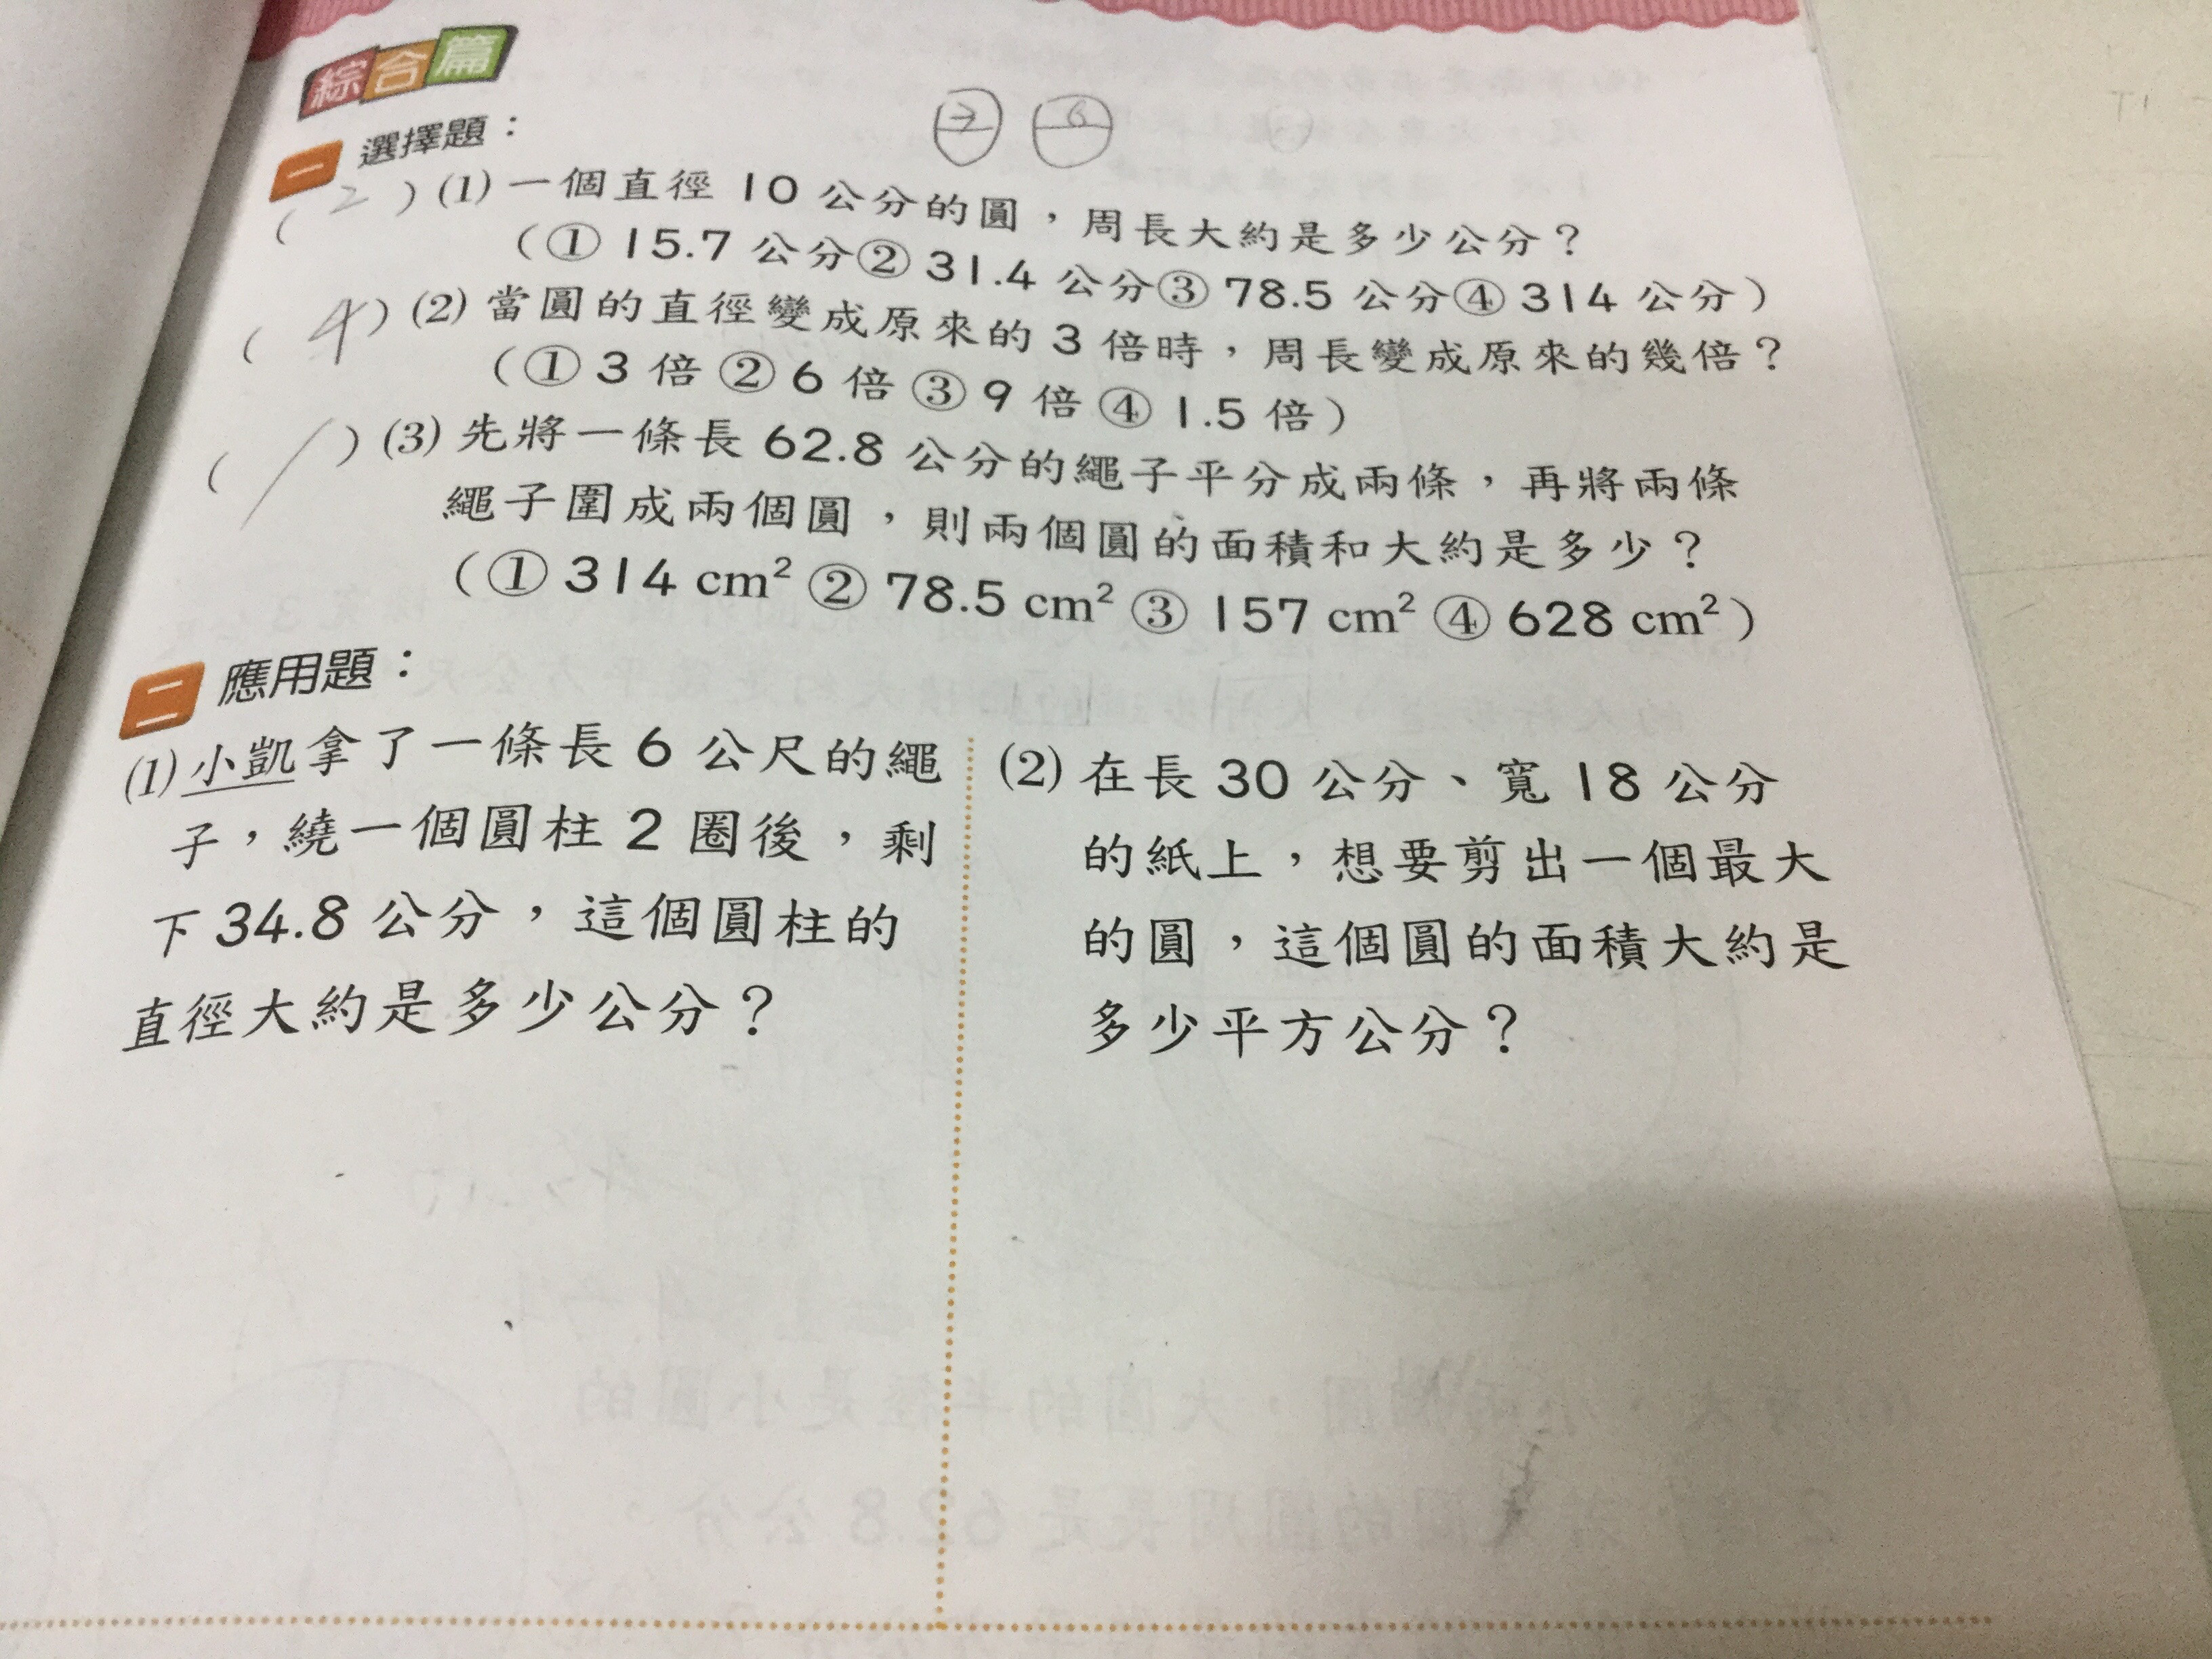 綜合篇
一 選擇題：
7 6
( 2 ) (1) 一個直徑 10 公分的圓，周長大約是多少公分？
（① 15.7 公分② 31.4 公分③ 78.5 公分④ 314 公分）
( 4 ) (2) 當圓的直徑變成原來的 3 倍時，周長變成原來的幾倍？
（① 3 倍 ② 6 倍 ③ 9 倍 ④ 1.5 倍）
( / ) (3) 先將一條長 62.8 公分的繩子平分成兩條，再將兩條
繩子圍成兩個圓，則兩個圓的面積和大約是多少？
（① 314 cm² ② 78.5 cm² ③ 157 cm² ④ 628 cm²）
二 應用題：
(1) 小凱拿了一條長 6 公尺的繩
子，繞一個圓柱 2 圈後，剩
下 34.8 公分，這個圓柱的
直徑大約是多少公分？
(2) 在長 30 公分、寬 18 公分
的紙上，想要剪出一個最大
的圓，這個圓的面積大約是
多少平方公分？